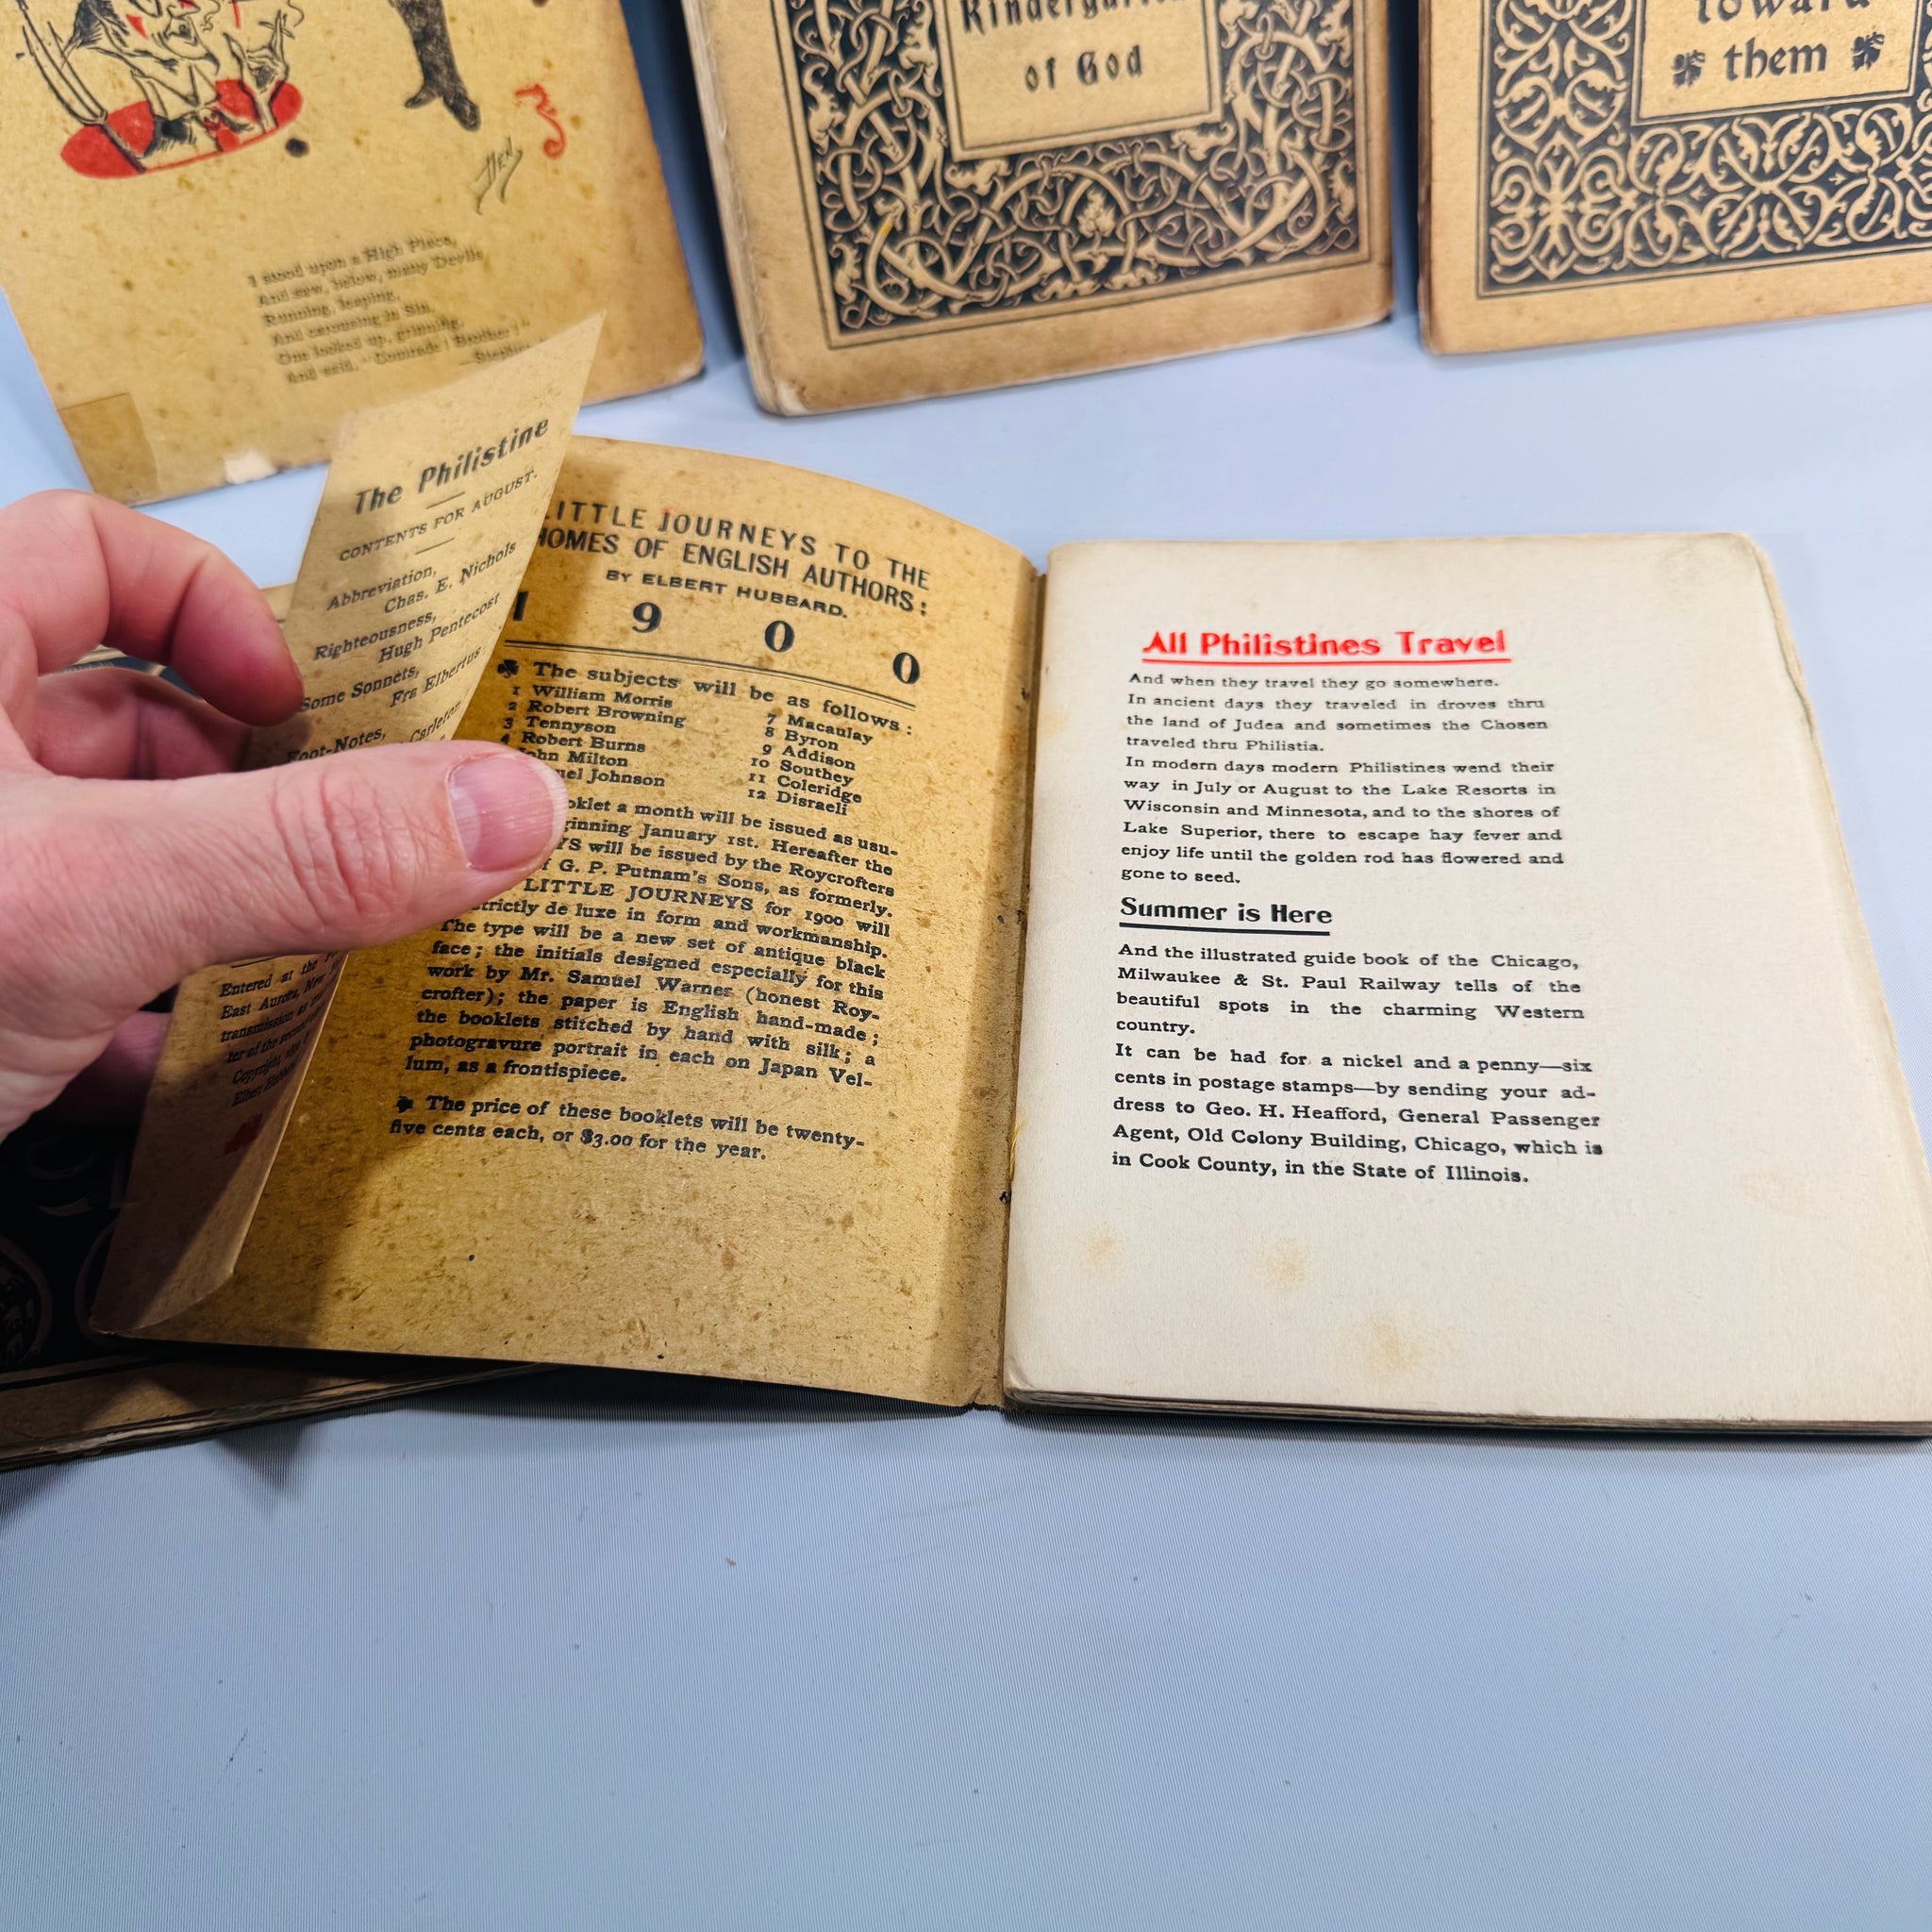 Kindergarten
of God
toward
them
I stood upon a High Place,
And saw, below, many Devils
Running, leaping,
And carousing in Sin.
One looked up, grinning,
And said, "Comrade! Brother!"
—Stephen
The Philistine
CONTENTS FOR AUGUST.
Abbreviation,
Chas. E. Nichols
Righteousness,
Hugh Pentecost
Some Sonnets,
Fra Elbertus
Foot-Notes,
Carleton
Entered at the
East Aurora, New
transmission as
ter of the second
Copyright
Elbert Hubbard
LITTLE JOURNEYS TO THE
HOMES OF ENGLISH AUTHORS:
BY ELBERT HUBBARD.
1 9 0 0
The subjects will be as follows:
1 William Morris
2 Robert Browning
3 Tennyson
4 Robert Burns
John Milton
uel Johnson
7 Macaulay
8 Byron
9 Addison
10 Southey
11 Coleridge
12 Disraeli
oklet a month will be issued as usu-
ginning January 1st. Hereafter the
YS will be issued by the Roycrofters
f G. P. Putnam's Sons, as formerly.
LITTLE JOURNEYS for 1900 will
strictly de luxe in form and workmanship.
The type will be a new set of antique black
face; the initials designed especially for this
work by Mr. Samuel Warner (honest Roy-
crofter); the paper is English hand-made;
the booklets stitched by hand with silk; a
photogravure portrait in each on Japan Vel-
lum, as a frontispiece.
The price of these booklets will be twenty-
five cents each, or $3.00 for the year.
All Philistines Travel
And when they travel they go somewhere.
In ancient days they traveled in droves thru
the land of Judea and sometimes the Chosen
traveled thru Philistia.
In modern days modern Philistines wend their
way in July or August to the Lake Resorts in
Wisconsin and Minnesota, and to the shores of
Lake Superior, there to escape hay fever and
enjoy life until the golden rod has flowered and
gone to seed.
Summer is Here
And the illustrated guide book of the Chicago,
Milwaukee & St. Paul Railway tells of the
beautiful spots in the charming Western
country.
It can be had for a nickel and a penny—six
cents in postage stamps—by sending your ad-
dress to Geo. H. Heafford, General Passenger
Agent, Old Colony Building, Chicago, which is
in Cook County, in the State of Illinois.